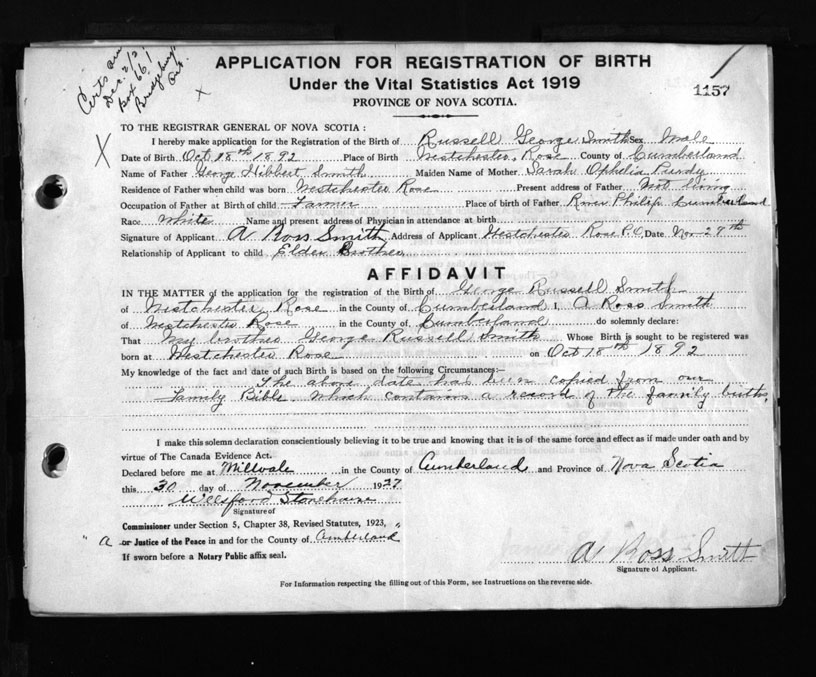 Certs on
Dec. 2/2
Box 661
Bridgeburg
Ont.
APPLICATION FOR REGISTRATION OF BIRTH
Under the Vital Statistics Act 1919
1157
PROVINCE OF NOVA SCOTIA.
TO THE REGISTRAR GENERAL OF NOVA SCOTIA:
I hereby make application for the Registration of the Birth of Russell George Smith Sex Male
Date of Birth Oct 18th 1892 Place of Birth Westchester, Rose County of Cumberland
Name of Father George Hibbert Smith Maiden Name of Mother Sarah Ophelia Purdy
Residence of Father when child was born Westchester Rose Present address of Father Not living
Occupation of Father at Birth of child Farmer Place of birth of Father River Philip Cumberland
Race White Name and present address of Phyician in attendance at birth
Signature of Applicant A Ross Smith Address of Applicant Westchester Rose P.O. Date Nov 29th
Relationship of Applicant to child Elder Brother
AFFIDAVIT
IN THE MATTER of the application for the registration of the Birth of George Russell Smith
of Westchester Rose in the County of Cumberland I, A Ross Smith
of Westchester Rose in the County of Cumberland do solemnly declare:
That My brother George Russell Smith Whose Birth is sought to be registered was
born at Westchester Rose on Oct 18th 1892
My knowledge of the fact and date of such Birth is based on the following Circumstances:—
The above date has been copied from our
Family Bible which contains a record of the family births.
I make this solemn declaration conscientiously believing it to be true and knowing that it is of the same force and effect as if made under oath and by
virtue of The Canada Evidence Act.
Declared before me at Millvale in the County of Cumberland and Province of Nova Scotia
this 30 day of November 1927
Wellsford Stonehouse
Signature of
Commissioner under Section 5, Chapter 38, Revised Statutes, 1923, "
" a or Justice of the Peace in and for the County of Cumberland
If sworn before a Notary Public affix seal.
A Ross Smith
Signature of Applicant.
For Information respecting the filling out of this Form, see Instructions on the reverse side.